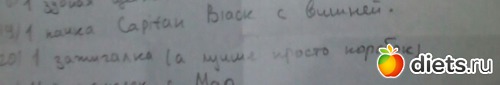 1 зубная
19) 1 пачка Capitan Black с вишней.
20) 1 зажигалка (а лучше просто коробок)
с Мар
diets.ru